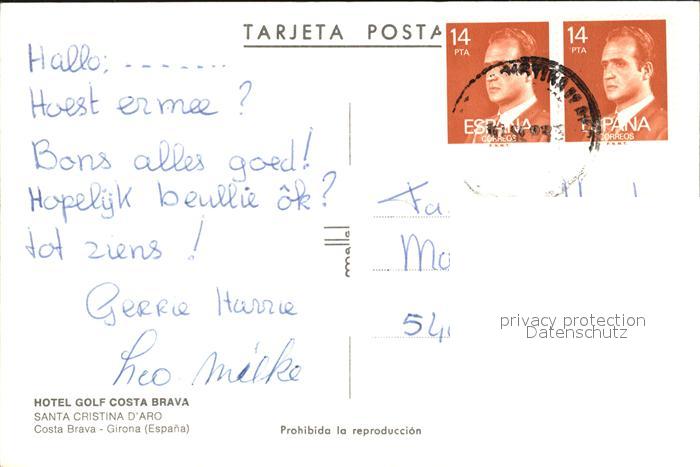 TARJETA POSTA
14 PTA
ESPAÑA
CORREOS
F.N.M.T.
14 PTA
ESPAÑA
CORREOS
F.N.M.T.
Hallo; - - - - - . .
Hoest ermee ?
Bons alles goed!
Hopelijk beullie ôk?
tot ziens !
Gerrie Harrie
Leo. Mieke
Fa.
Mo
54
privacy protection
Datenschutz
HOTEL GOLF COSTA BRAVA
SANTA CRISTINA D'ARO
Costa Brava - Girona (España)
Prohibida la reproducción